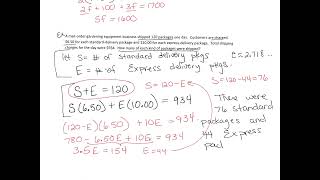 2f + 100 = 3f = 1700
5f = 1600
A mail order gardening equipment business shipped 120 packages one day. Customers are charged
$6.50 for each standard-delivery package and $10.00 for each express delivery package. Total shipping
charges for the day were $934. How many of each kind of packages were shipped?
let S = # of standard delivery pkgs
e = 2.718...
E = # of Express delivery pkgs
S = 120 - 44 = 76
S + E = 120
S = 120 - E
S(6.50) + E(10.00) = 934
There were
(120 - E)(6.50) + 10E = 934
76 standard
packages and
780 - 6.50E + 10E = 934
44 Express
3.5E = 154
E = 44
pac